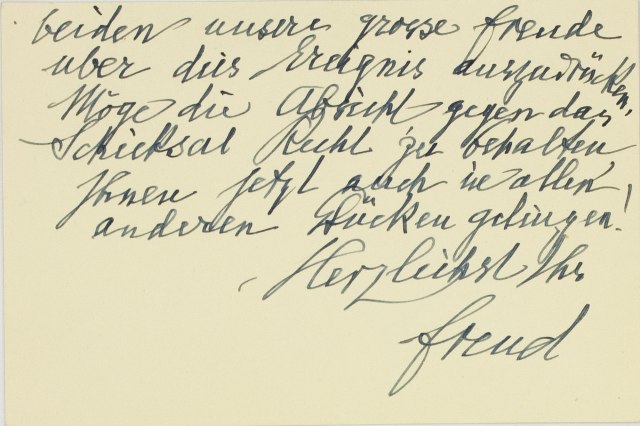 beiden unsere grosse Freude
über das Ereignis auszudrücken.
Möge die Absicht gegen das
Schicksal Recht zu behalten,
Ihnen jetzt auch in allen
anderen Stücken gelingen!
Herzlichst Ihr
Freud